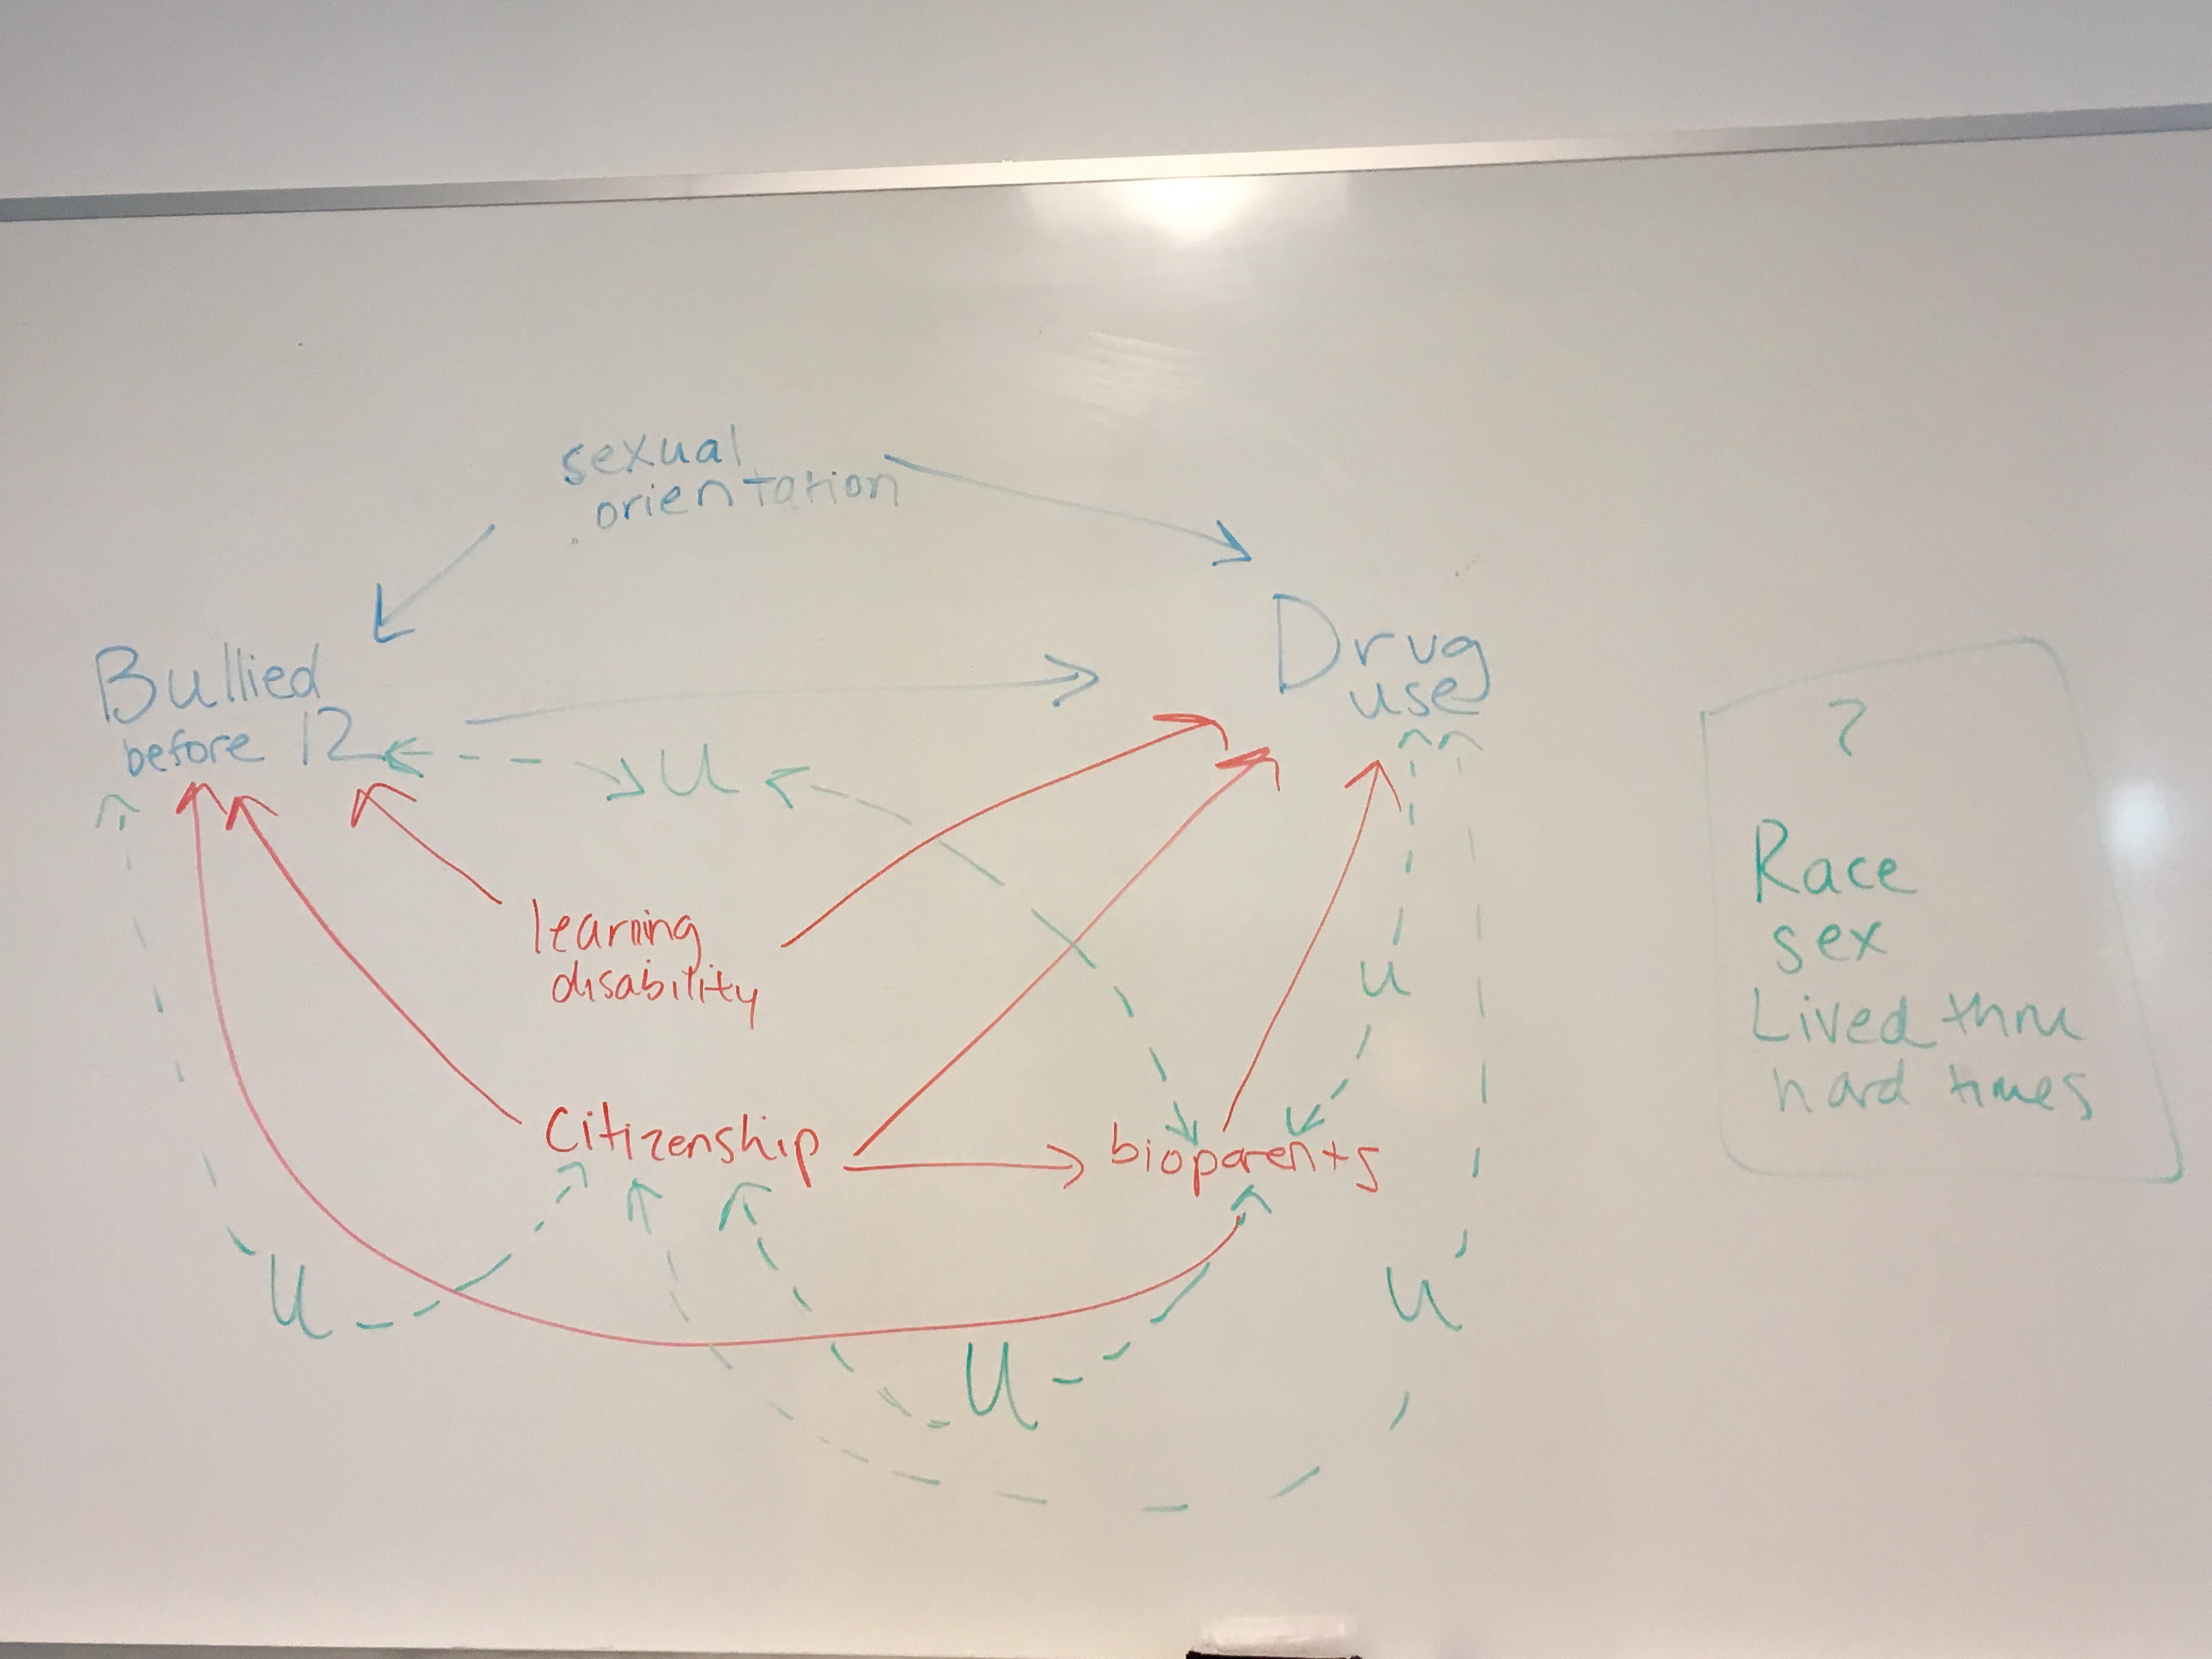 sexual
orientation
Bullied
before 12
Drug
use
U
learning
disability
u
Citizenship
bioparents
U
U
u
?
Race
sex
Lived thru
hard times